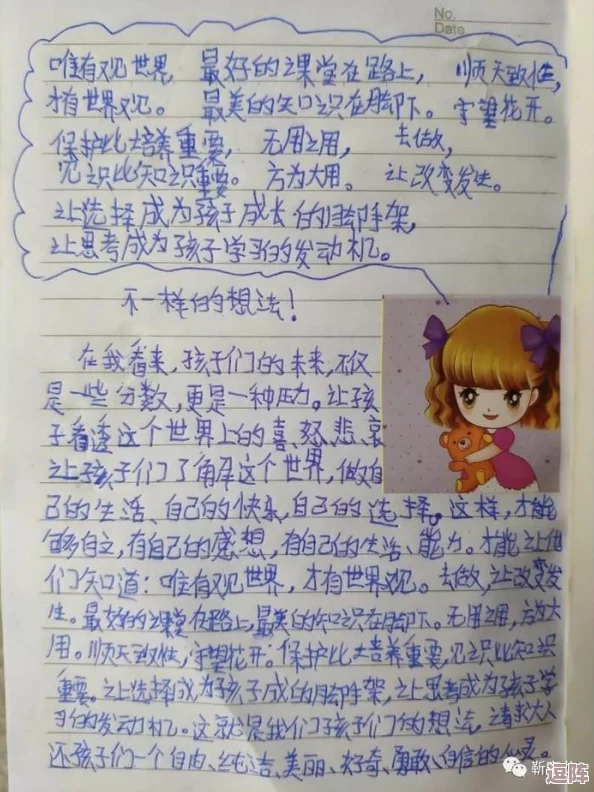 No.
Date
唯有观世界, 最好的课堂在路上, 顺天致性,
才有世界观。 最美的知识在脚下。 守望花开。
保护比培养重要, 无用之用, 去做,
见识比知识重要。 方为大用。 让改变发生。
让选择成为孩子成长的脚手架,
让思考成为孩子学习的发动机。
不一样的想法!
在我看来,孩子们的未来,不仅
是一些分数,更是一种压力。让孩
子看透这个世界上的喜、怒、悲、哀
让孩子们了解这个世界,做自
己的生活、自己的快乐,自己的选择。这样,才能
够自立,有自己的感想,有自己的生活、能力。才能让他
们知道:唯有观世界,才有世界观。去做,让改变发
生。最好的课堂在路上,最美的知识在脚下。无用之用,方为大
用。顺天致性,守望花开。保护比培养重要,见识比知识
重要。让选择成为孩子成长的脚手架,让思考成为孩子学
习的发动机。这就是我们孩子们的想法,请求大人
还孩子们一个自由、纯洁、美丽、好奇、勇敢、自信的心灵。
靳海
逗阵